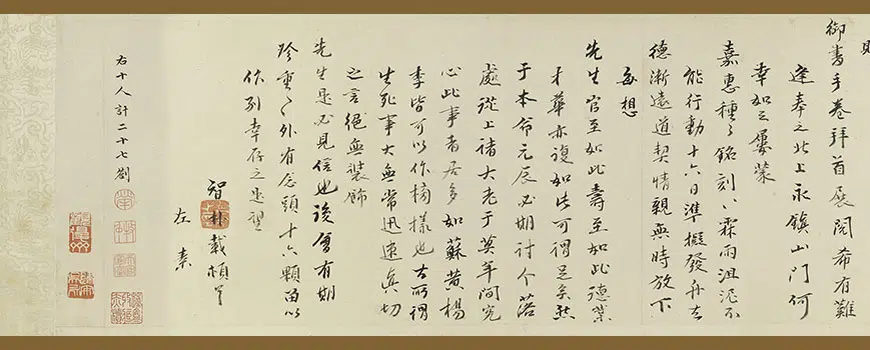 御書手卷拜首展閱希有難
逢奉之北上永鎮山門何
幸如之屢蒙
嘉惠種々銘刻々霖雨沮泥不
能行動十六日準擬發舟去
德漸遠道契情親無時放下
每想
先生官至如此壽至如此德業
才華亦復如此可謂足矣然
于本命元辰必期討个落
處從上諸大老于莫年間究
心此事者居多如蘇黃楊
李皆可以作榜樣也古所謂
生死事大無常迅速真切
之言絕無裝飾
先生是必見信也後會有期
珍重々外有念頭十六顆留以
作別幸存之是望
智朴載頓首
左素
右十人計二十七劄